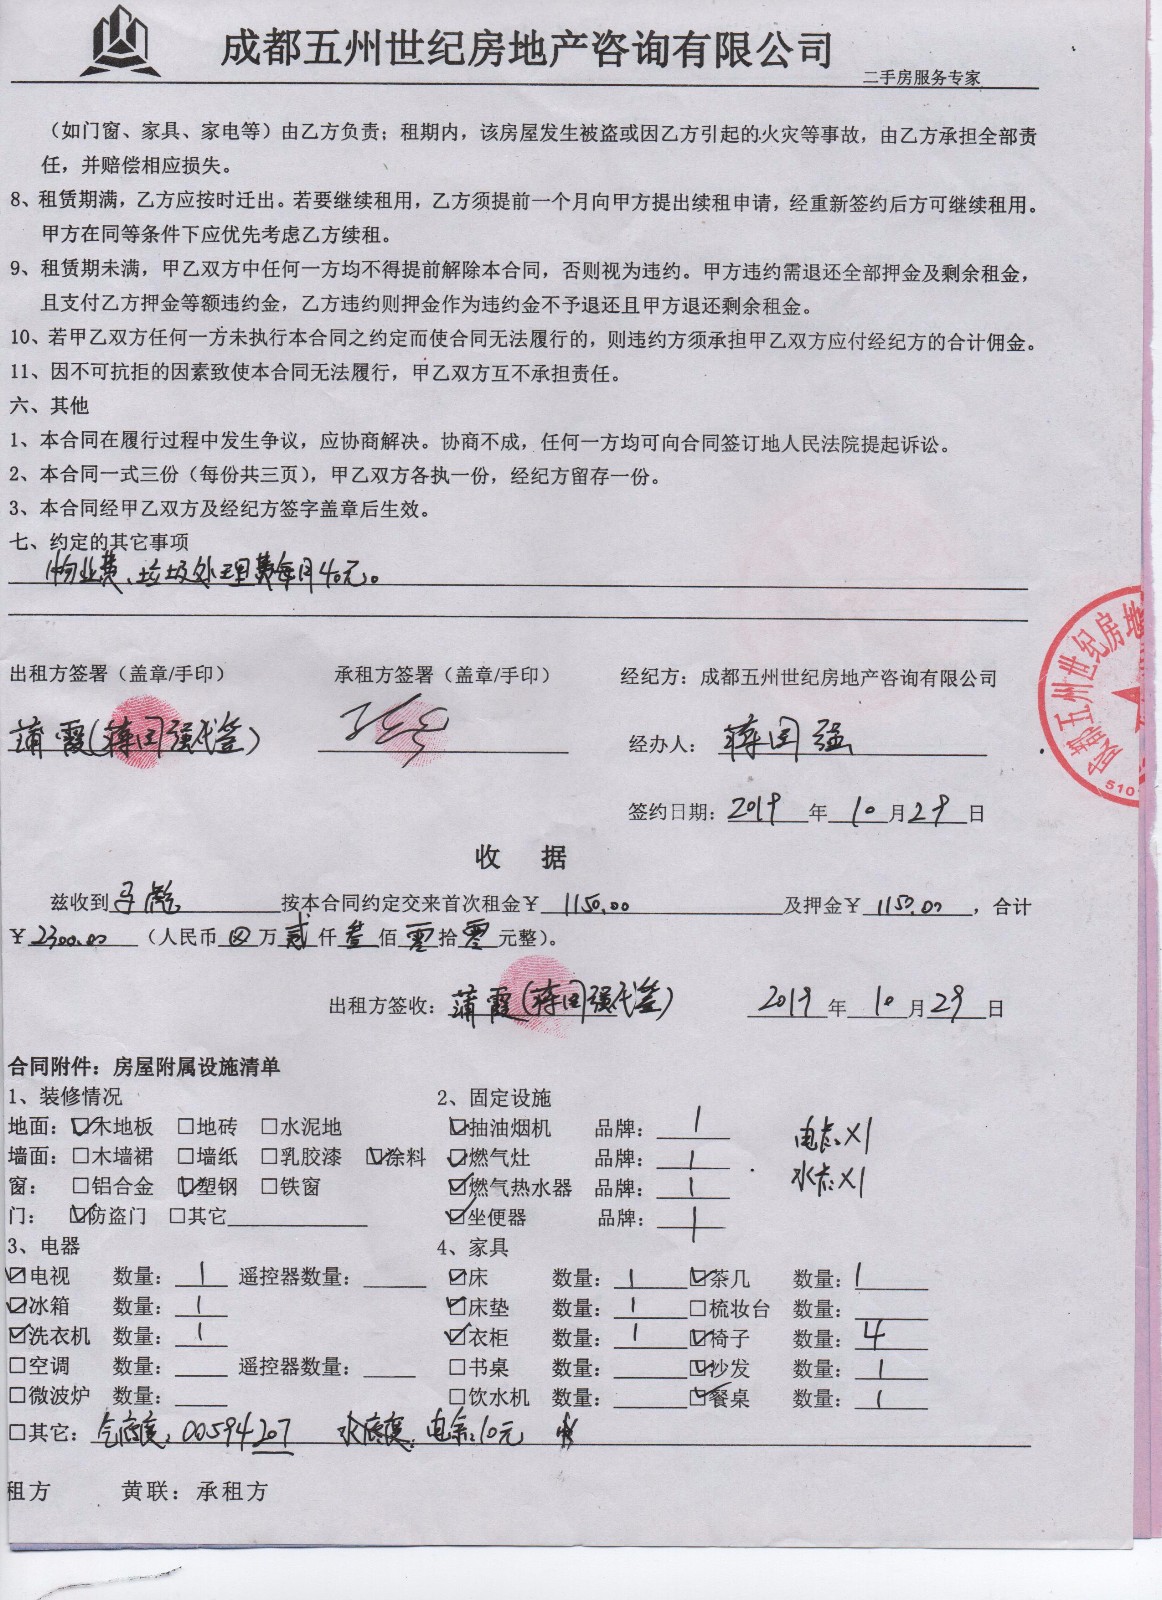 成都五州世纪房地产咨询有限公司
二手房服务专家
（如门窗、家具、家电等）由乙方负责；租期内，该房屋发生被盗或因乙方引起的火灾等事故，由乙方承担全部责
任，并赔偿相应损失。
8、租赁期满，乙方应按时迁出。若要继续租用，乙方须提前一个月向甲方提出续租申请，经重新签约后方可继续租用。
甲方在同等条件下应优先考虑乙方续租。
9、租赁期未满，甲乙双方中任何一方均不得提前解除本合同，否则视为违约。甲方违约需退还全部押金及剩余租金，
且支付乙方押金等额违约金，乙方违约则押金作为违约金不予退还且甲方退还剩余租金。
10、若甲乙双方任何一方未执行本合同之约定而使合同无法履行的，则违约方须承担甲乙双方应付经纪方的合计佣金。
11、因不可抗拒的因素致使本合同无法履行，甲乙双方互不承担责任。
六、其他
1、本合同在履行过程中发生争议，应协商解决。协商不成，任何一方均可向合同签订地人民法院提起诉讼。
2、本合同一式三份（每份共三页），甲乙双方各执一份，经纪方留存一份。
3、本合同经甲乙双方及经纪方签字盖章后生效。
七、约定的其它事项
物业费、垃圾处理费每月40元。
出租方签署（盖章/手印） 承租方签署（盖章/手印） 经纪方：成都五州世纪房地产咨询有限公司
蒲霞(蒋国强代签) 经办人：蒋国强
成都五州世纪房地
5101
签约日期：2019年10月29日
收 据
兹收到 按本合同约定交来首次租金￥1150.00 及押金￥1150.00，合计
￥2300.00（人民币 万贰仟叁佰零拾零元整）。
出租方签收：蒲霞(蒋国强代签) 2019年10月29日
合同附件：房屋附属设施清单
1、装修情况 2、固定设施
地面：☑木地板 □地砖 □水泥地 ☑抽油烟机 品牌：1 电卡X1
墙面：□木墙裙 □墙纸 □乳胶漆 ☑涂料 ☑燃气灶 品牌：1 水卡X1
窗： □铝合金 ☑塑钢 □铁窗 ☑燃气热水器 品牌：1
门： ☑防盗门 □其它 ☑坐便器 品牌：1
3、电器 4、家具
☑电视 数量：1 遥控器数量： ☑床 数量：1 ☑茶几 数量：1
☑冰箱 数量：1 ☑床垫 数量：1 □梳妆台 数量：
☑洗衣机 数量：1 ☑衣柜 数量：1 ☑椅子 数量：4
□空调 数量： 遥控器数量： □书桌 数量： ☑沙发 数量：1
□微波炉 数量： □饮水机 数量： ☑餐桌 数量：1
□其它：气底度：00594207 水底度： 电余：10元
租方 黄联：承租方